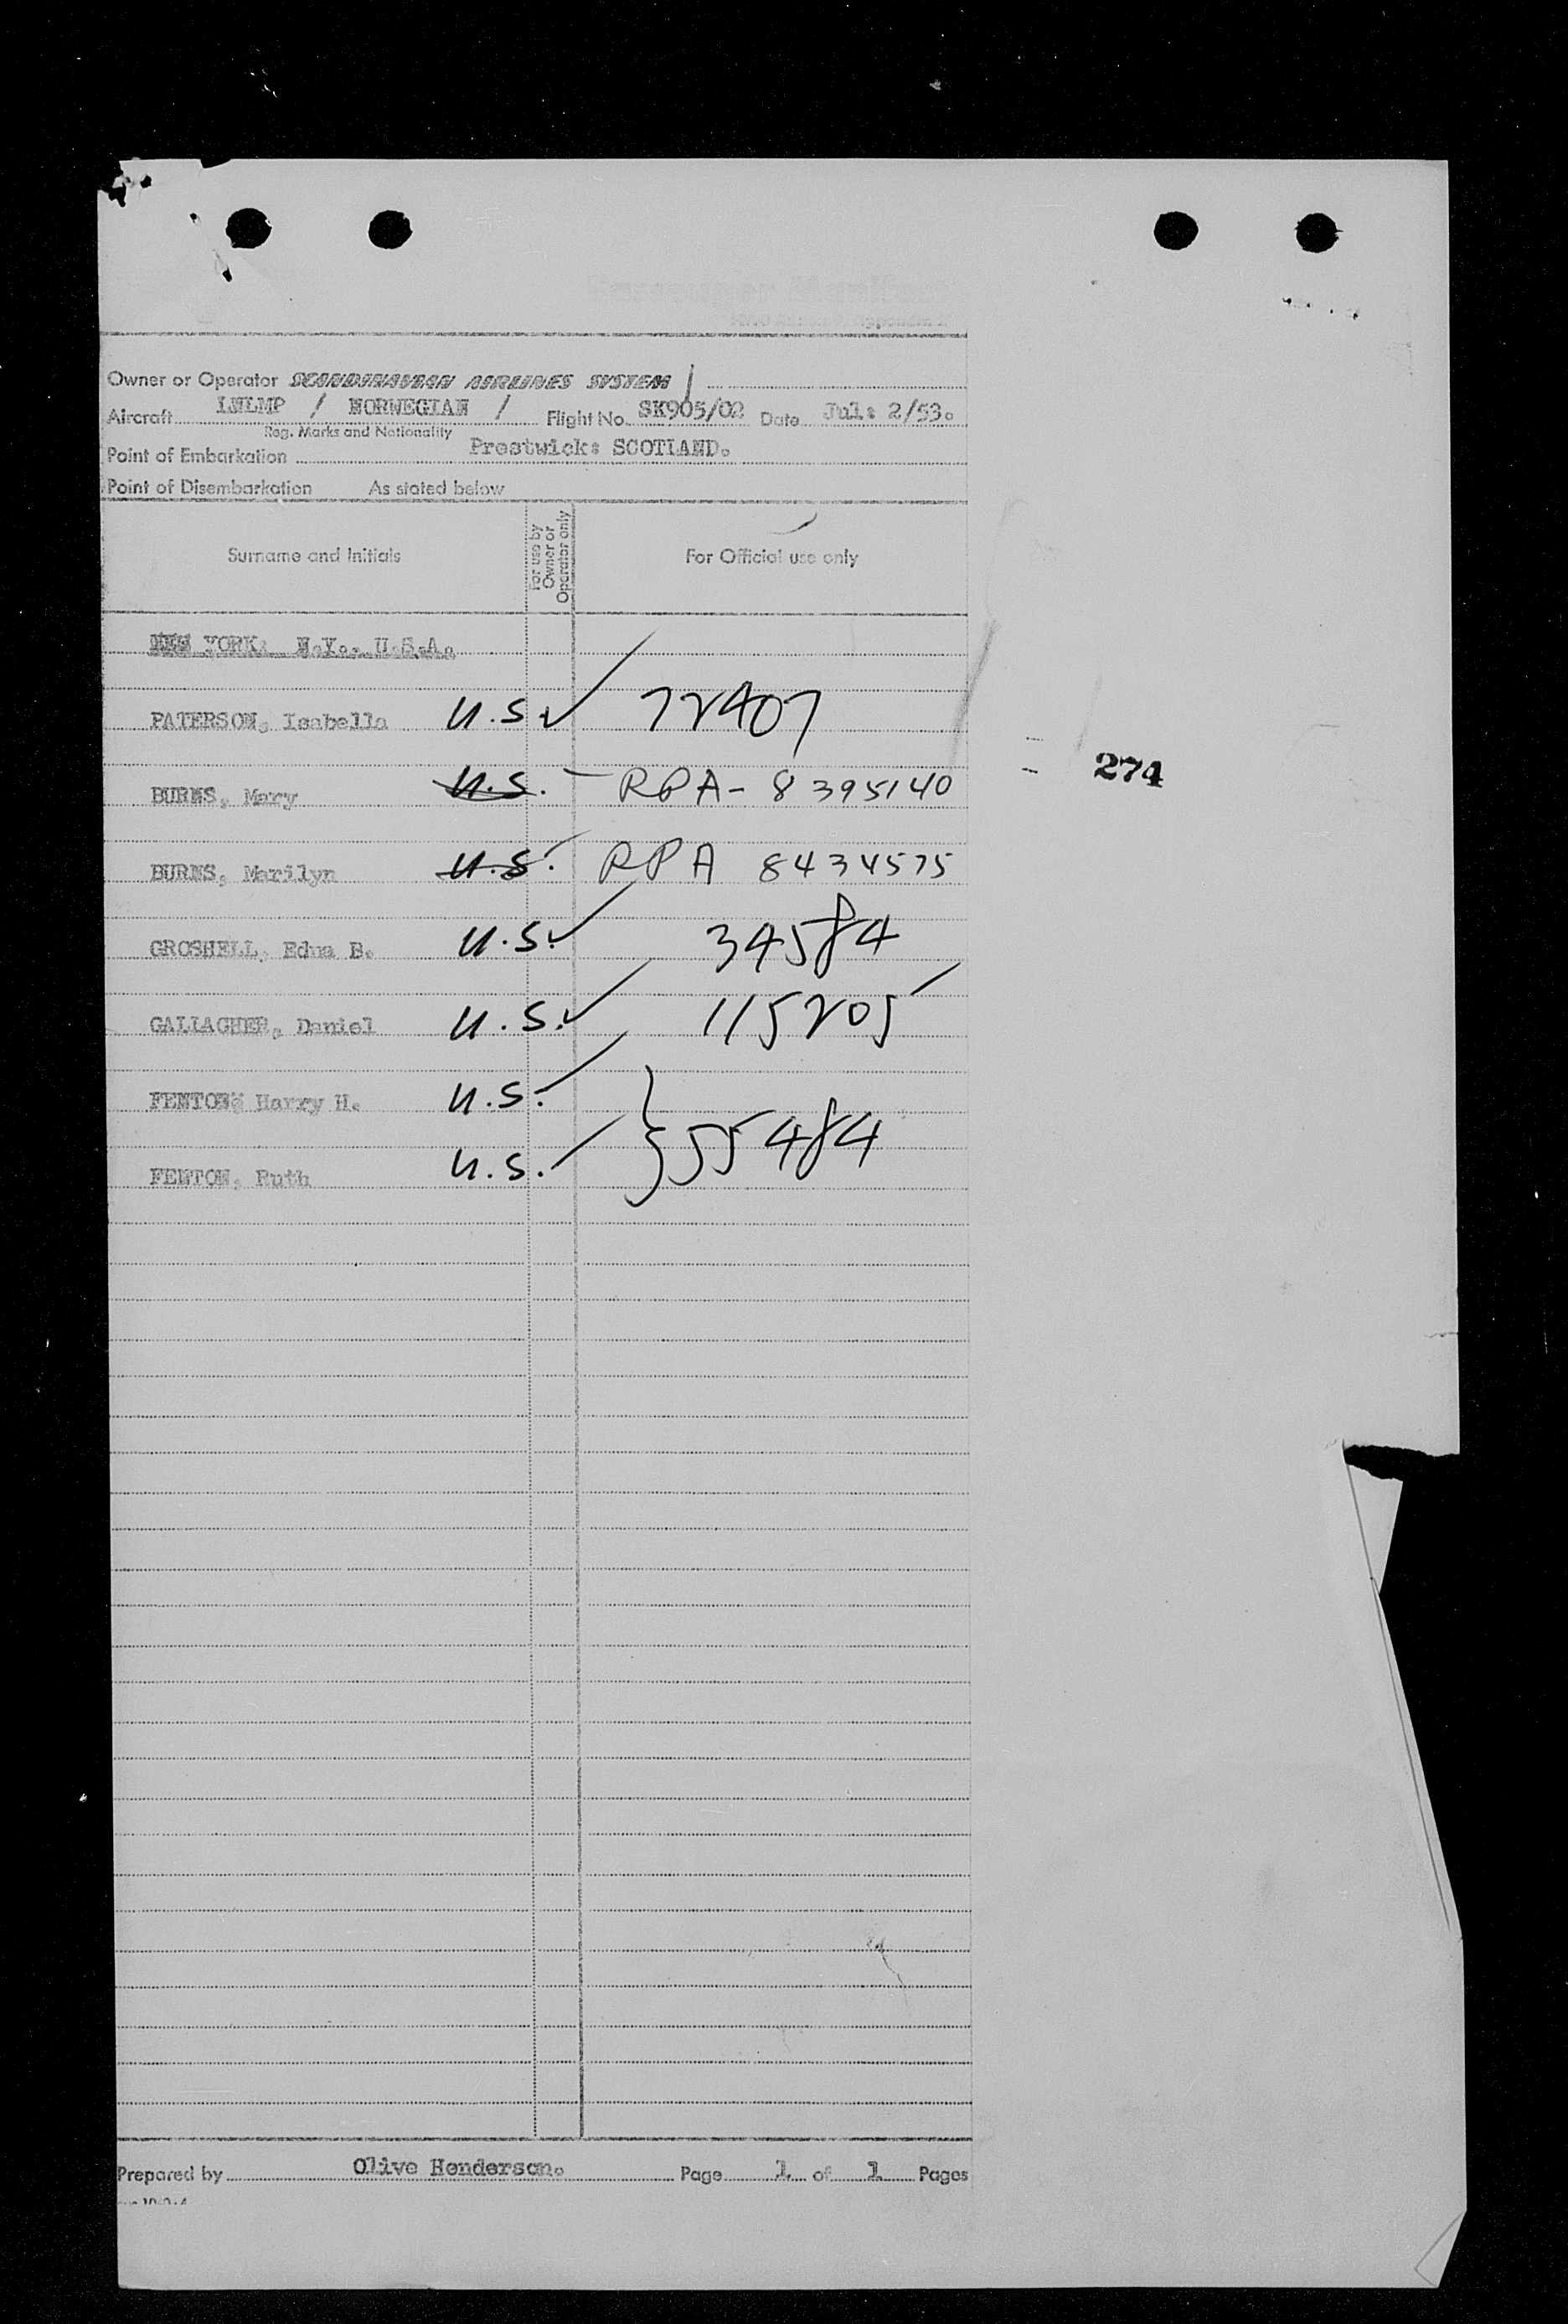 Owner or Operator SCANDINAVIAN AIRLINES SYSTEM /
Aircraft LNLMP / NORWEGIAN / Flight No. SK905/02 Date Jul: 2/53.
Reg. Marks and Nationality
Point of Embarkation Prestwick: SCOTLAND.
Point of Disembarkation As stated below
Surname and Initials For use by Owner or Operator only For Official use only
NEW YORK: N.Y.. U.S.A.
PATERSON, Isabella U.S. 72407
274
BURNS, Mary U.S. RPA- 8395140
BURNS, Marilyn U.S. RPA 8434575
GROSHELL, Edna B. U.S. 34584
GALLAGHER, Daniel U.S. 115205
FENTON, Harry H. U.S.
55484
FENTON, Ruth U.S.
Prepared by Olive Henderson. Page 1 of 1 Pages